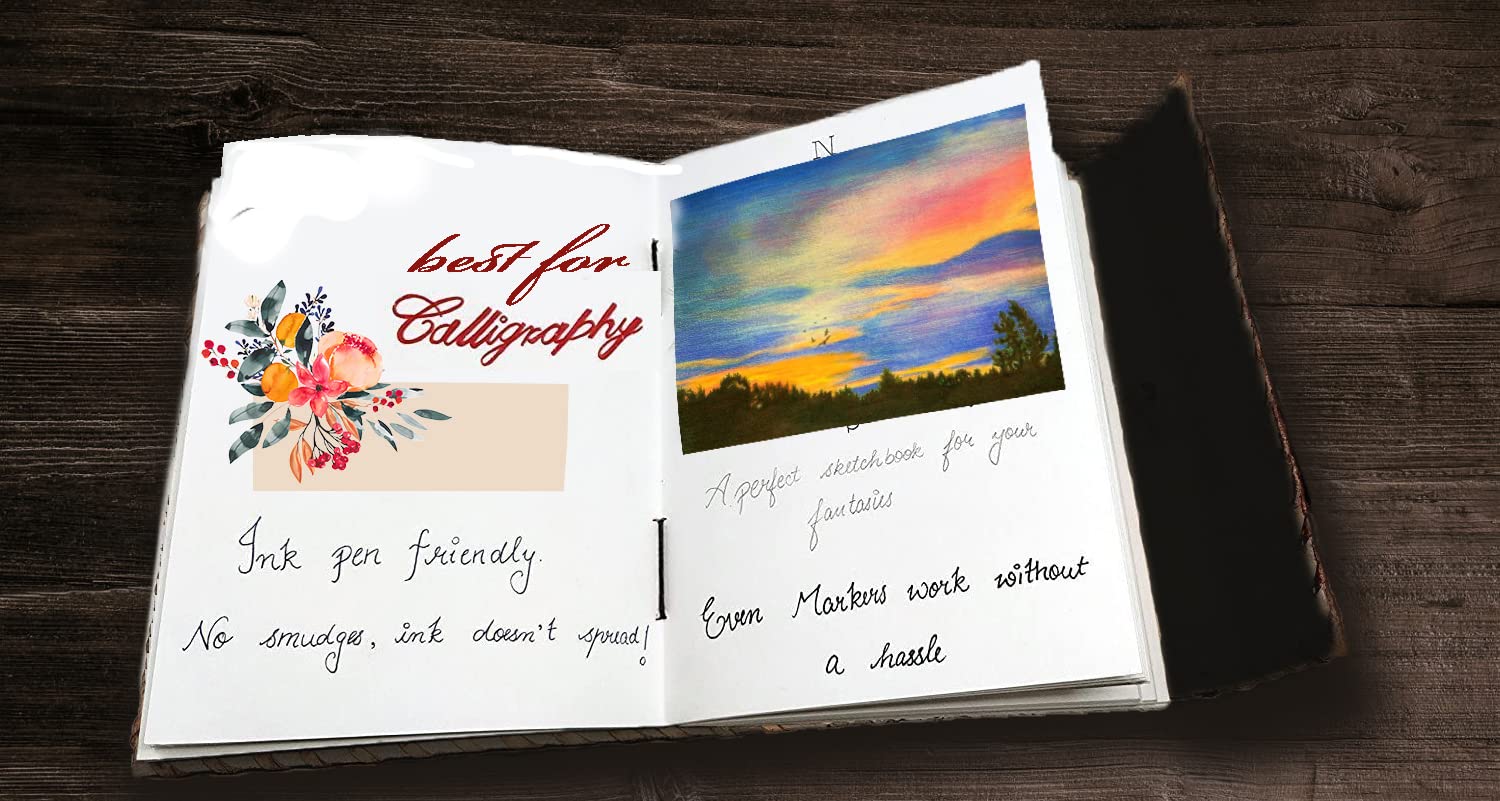 best for
Calligraphy
Ink pen friendly.
No smudges, ink doesn't spread!
N
S
A perfect sketchbook for your
fantasies
Even Markers work without
a hassle